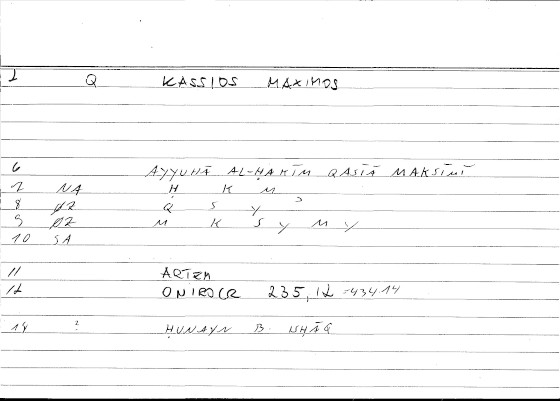 1 Q KASSIOS MAXIMOS
6 AYYUHĀ AL-ḤAKĪM QASIĀ MAKSĪMĪ
7 NA Ḥ K M
8 ØZ Q S Y ʾ
9 ØZ M K S Y M Y
10 SA
11 ARTEM
12 ONIROCR 235,12 =434 14
14 ? ḤUNAYN B. ISḤĀQ